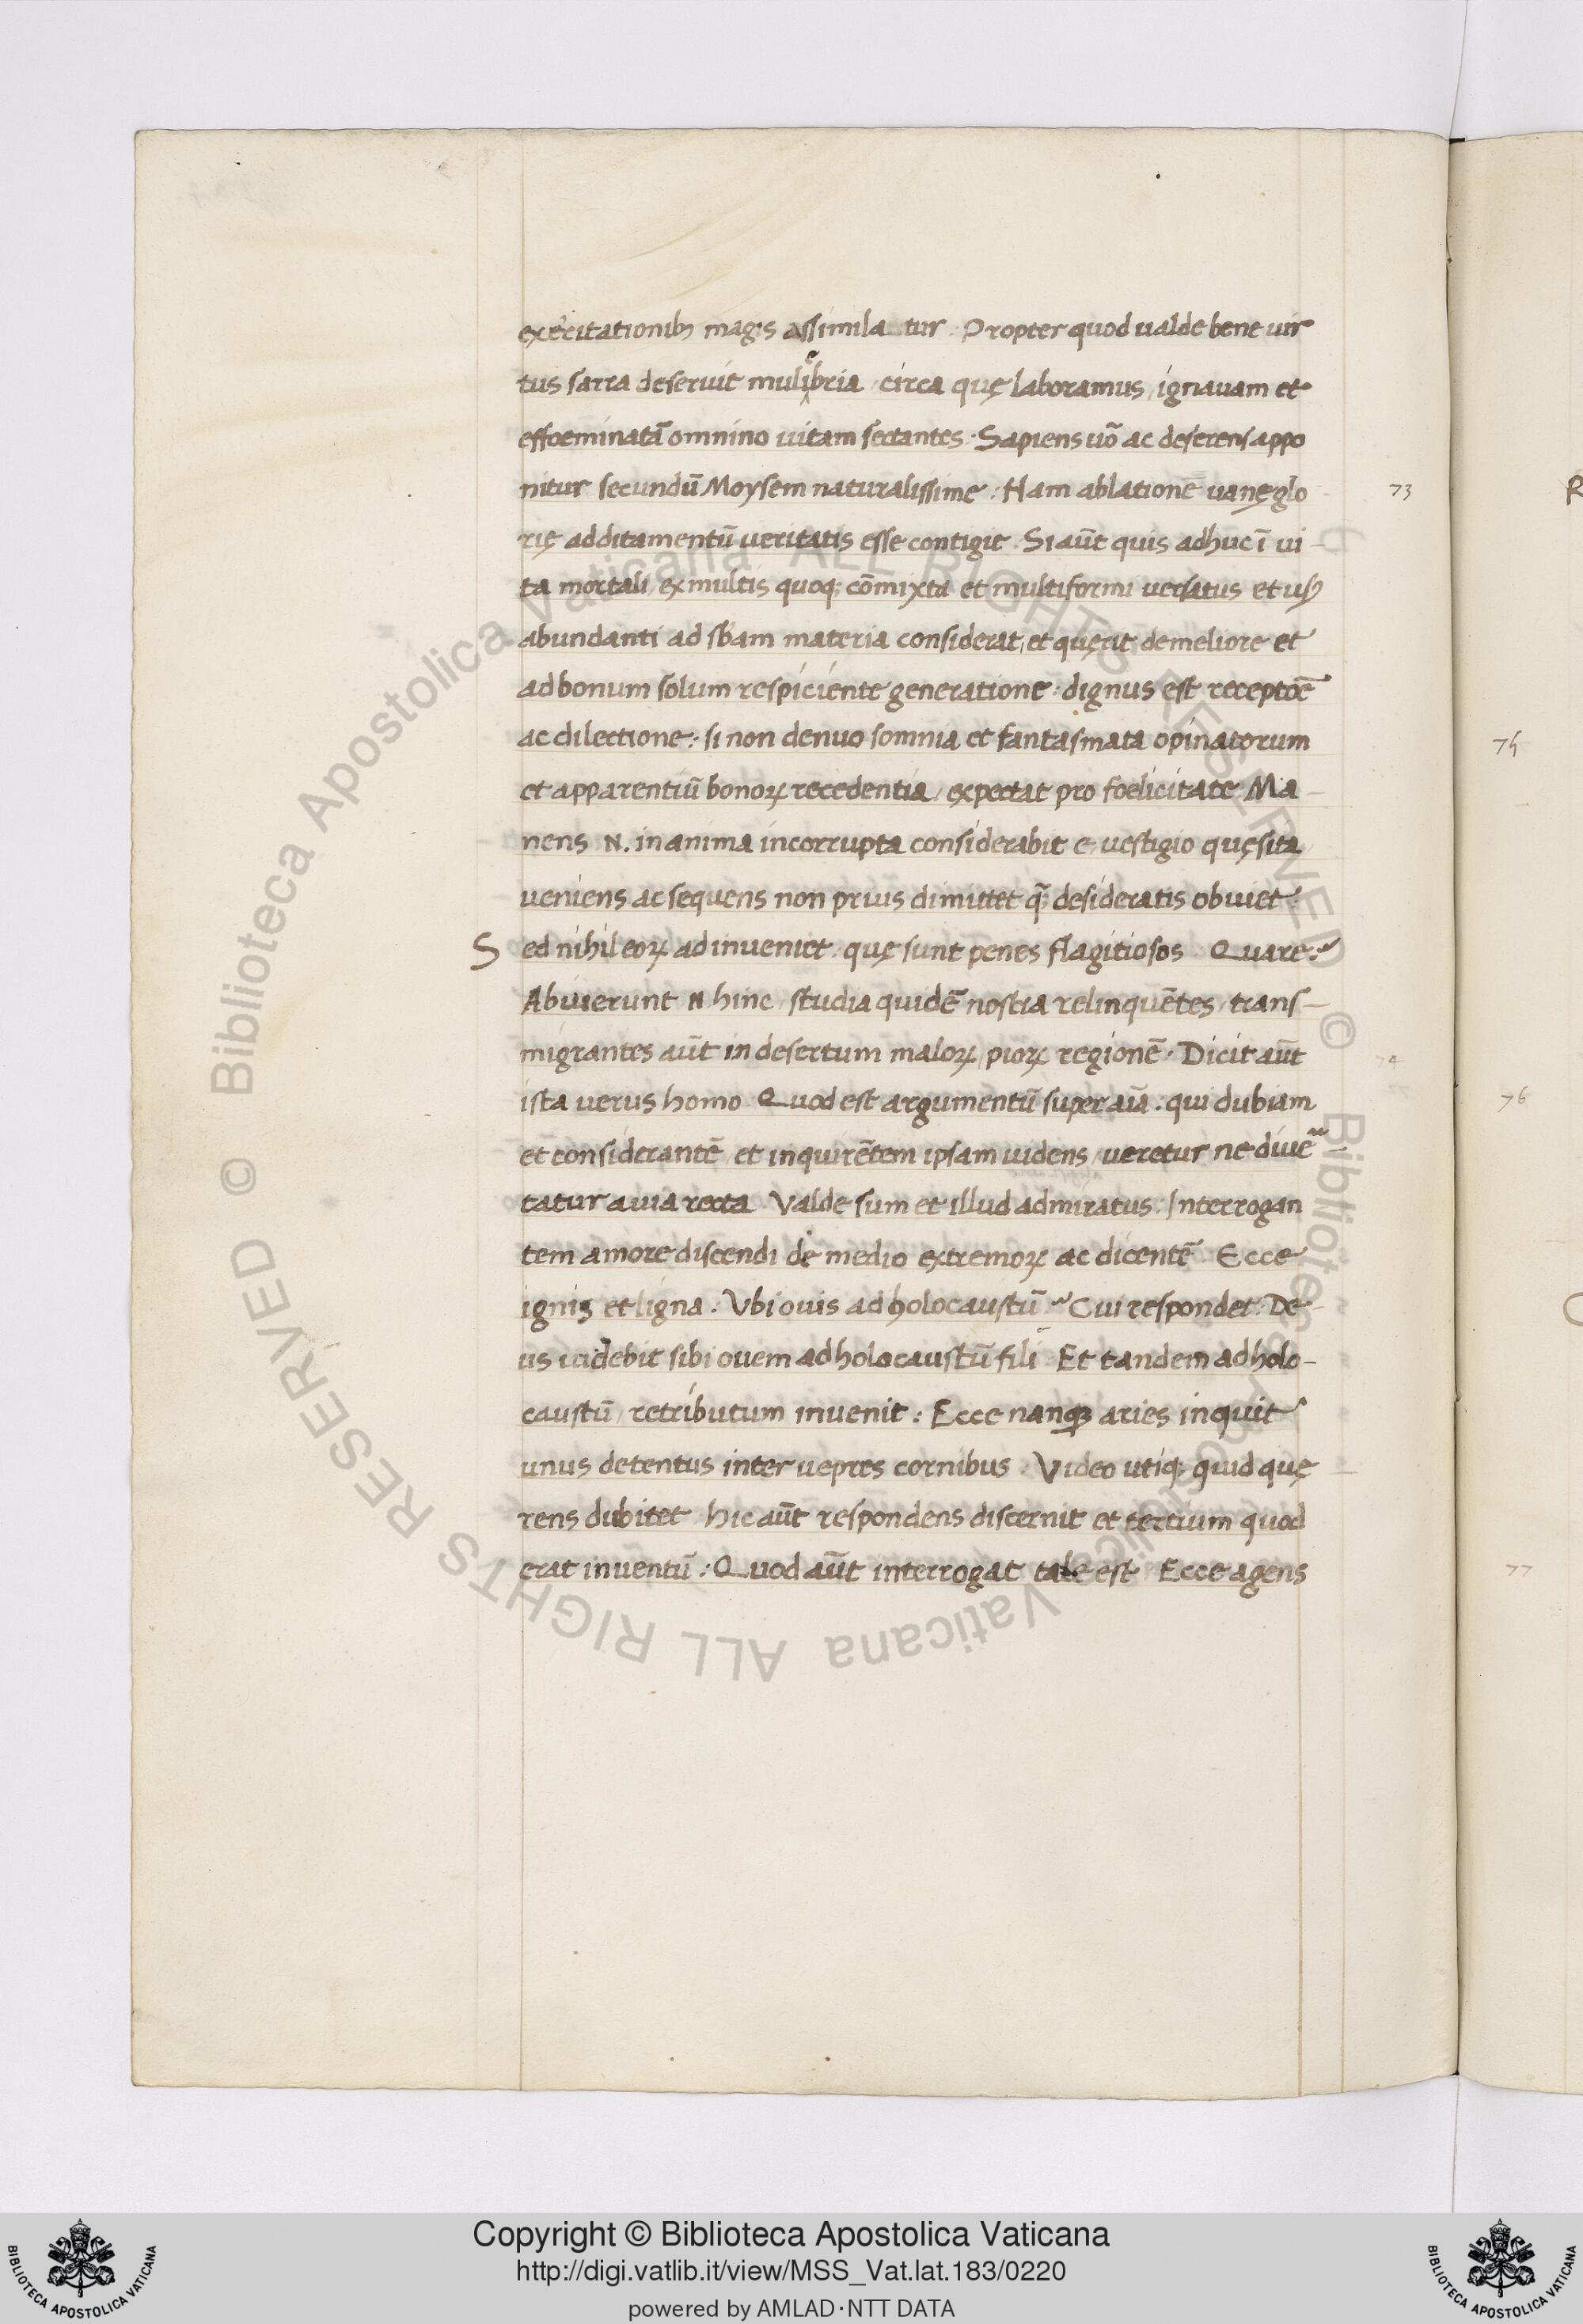 exercitationibꝫ magis assimila tur. Propter quod ualde bene uir
tus sarra deseruit muliebria / circa quę laboramus, ignauam et
effoeminatā omnino uitam sectantes. Sapiens uō ac deserens appo
nitur secundū Moysem naturalissime: Nam ablationē uanę glo
73
rię additamentū veritatis esse contigit. Si aūt quis adhuc ī vi-
ta mortali / ex multis quoq; cōmixta et multiformi versatus et usꝰ
abundanti ad sbam materia considerat, et quęrit de meliore et
ad bonum solum respiciente generatione: dignus est receptōē
ac dilectione: si non denuo somnia et fantasmata opinatorum
et apparentiū bonoꝝ recedentia / expectat pro foelicitate Ma-
nens N. in anima incorrupta considerabit e uestigio quęsita
ueniens ac sequens non prius dimittet q̄; desideratis obuiet:
Sed nihil eoꝝ adinueniet: quę sunt penes flagitiosos Quare?
Abuierunt N hinc / studia quidē nostra relinquētes / trans-
migrantes aūt in desertum maloꝝ / pioꝝ regionē. Dicit aūt
74
ista uerus homo Quod est argumentū super aiā. qui dubiam
et considerantē / et inquirētem ipsam uidens / veretur ne diuē
tatur a uia recta Valde sum et illud admiratus: Interrogan
tem amore discendi de medio extremoꝝ ac dicentē Ecce
ignis et ligna. Vbi ouis ad holocaustū? Cui respondet: De-
us uidebit sibi ouem ad holocaustū fili Et tandem ad holo-
caustū / retributum inuenit: Ecce nanqꝫ aries inquit
unus detentus inter uepres cornibus. Video utiq; quid quę
rens dubitet hic aūt respondens discernit et tertium quod
erat inuentū: Quod aūt interrogat tale est Ecce agens
R
75
76
77
Copyright © Biblioteca Apostolica Vaticana
http://digi.vatlib.it/view/MSS_Vat.lat.183/0220
powered by AMLAD·NTT DATA
BIBLIOTECA APOSTOLICA VATICANA
BIBLIOTECA APOSTOLICA VATICANA
© Biblioteca Apostolica Vaticana ALL RIGHTS RESERVED © Biblioteca Apostolica Vaticana ALL RIGHTS RESERVED